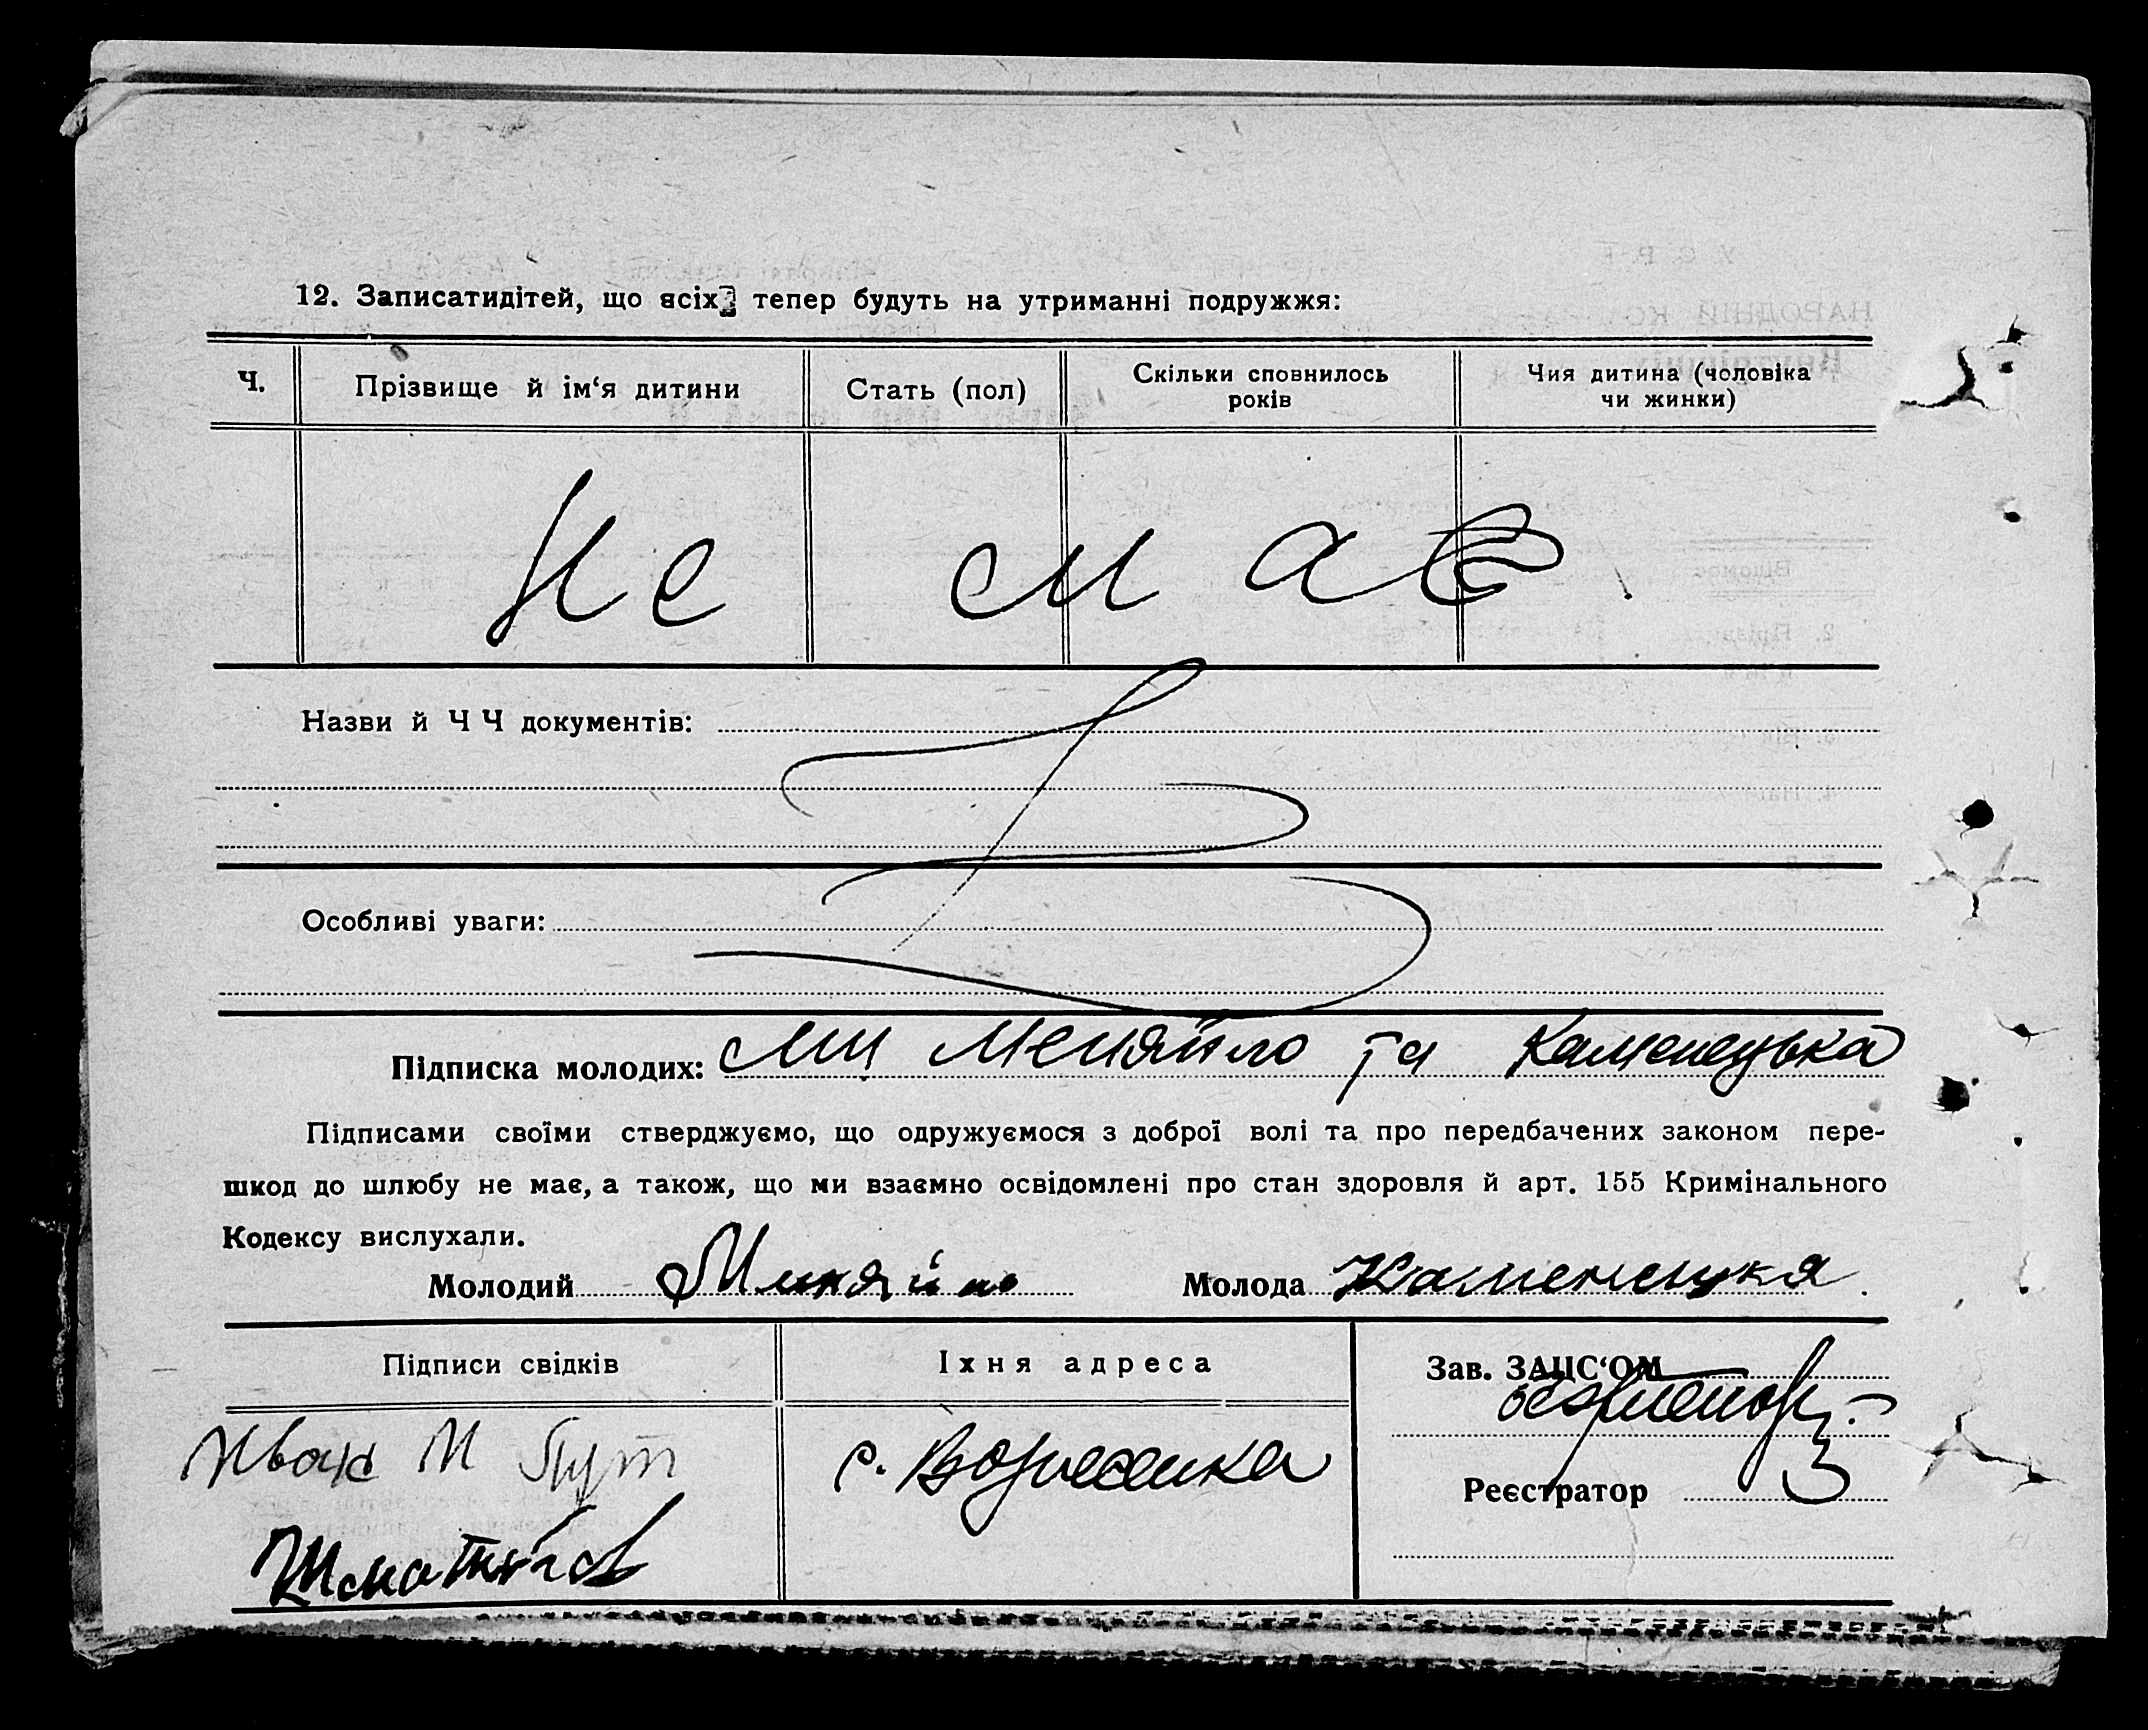 12. Записатидітей, що всіх тепер будуть на утриманні подружжя:
Ч.
Прізвище й ім‘я дитини
Стать (пол)
Скільки сповнилось
років
Чия дитина (чоловіка
чи жинки)
Не має
Назви й Ч Ч документів:
Особливі уваги:
Підписка молодих: Ми Меняйло та Каменецька
Підписами своїми стверджуємо, що одружуємося з доброї волі та про передбачених законом пере-
шкод до шлюбу не має, а також, що ми взаємно освідомлені про стан здоровля й арт. 155 Кримінального
Кодексу вислухали.
Молодий Миняйло Молода Каменецкя.
Підписи свідків
Їхня адреса
Зав. ЗАЦС‘ОМ
Иван И
с. Вознесенка
Реєстратор